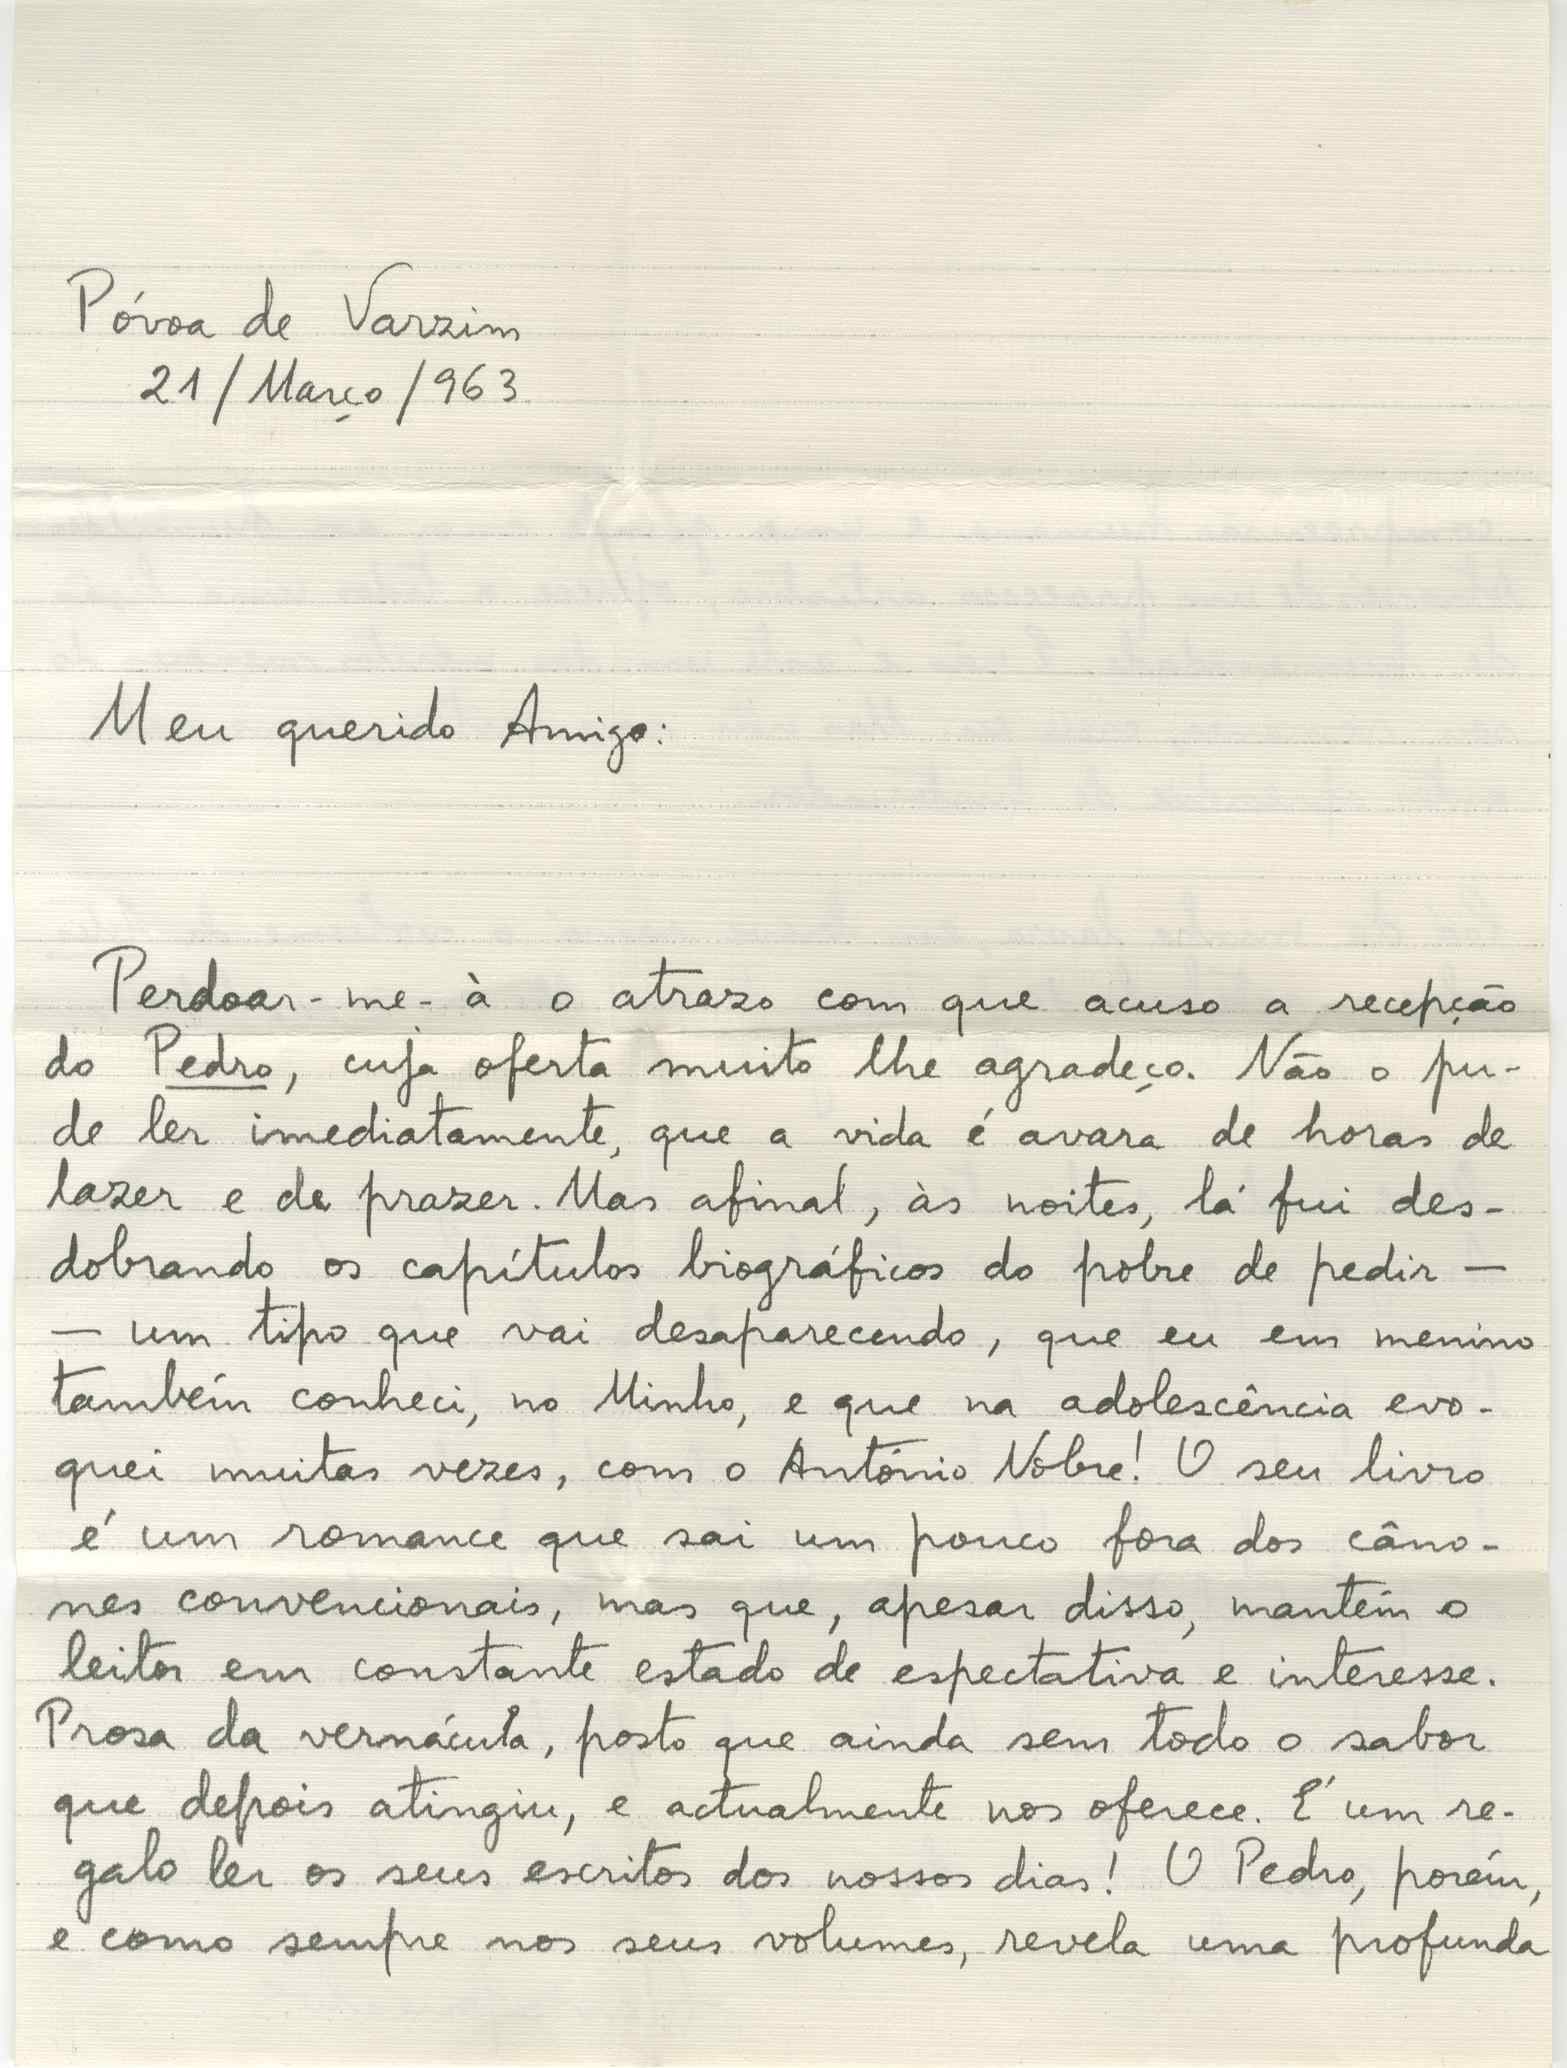 Póvoa de Varzim
21/Março/963
Meu querido Amigo:
Perdoar-me-à o atrazo com que acuso a recepção
do Pedro, cuja oferta muito lhe agradeço. Não o pu-
de ler imediatamente, que a vida é avara de horas de
lazer e de prazer. Mas afinal, às noites, lá fui des-
dobrando os capítulos biográficos do pobre de pedir —
— um tipo que vai desaparecendo, que eu em menino
também conheci, no Minho, e que na adolescência evo-
quei muitas vezes, com o António Nobre! O seu livro
é um romance que sai um pouco fora dos câno-
nes convencionais, mas que, apesar disso, mantém o
leitor em constante estado de espectativa e interesse.
Prosa da vernácula, posto que ainda sem todo o sabor
que depois atingiu, e actualmente nos oferece. É um re-
galo ler os seus escritos dos nossos dias! O Pedro, porém,
e como sempre nos seus volumes, revela uma profunda